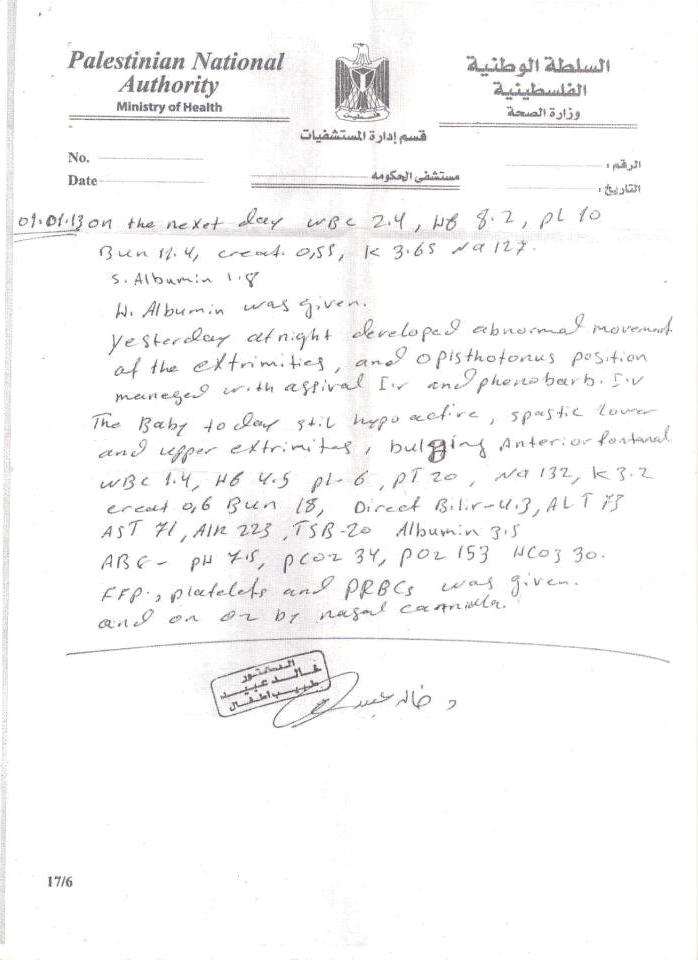 Palestinian National
Authority
Ministry of Health
السلطة الوطنية
الفلسطينية
وزارة الصحة
فلسطين
قسم إدارة المستشفيات
No.
Date
مستشفى الحكومه
الرقم :
التاريخ :
09.01.13 on the nexet day WBC 2.4, HB 8.2, pl 10
Bun 11.4, creat. 0,55, K 3.65 Na 127.
S. Albumin 1.8
H. Albumin was given.
yesterday at night developed abnormal movement
of the extrimities, and opisthotonus position
maneged with assival I.v and phenobarb. I.v
The Baby today stil hypoactive, spastic lower
and upper extrimites, bulging Anterior fontanal
WBC 1.4, HB 4.5 pl- 6, PT 20, Na 132, K 3.2
creat 0,6 Bun 18, Direct Bilir-4.3, ALT 73
AST 71, AlK 223, TSB-20 Albumin 3.5
ABG- pH 7.5, pCO2 34, pO2 153 HCO3 30.
FFP., platelets and PRBCs was given.
and on O2 by nasal cannula.
الدكتور
خالد عبيد
طبيب اطفال
د خالد عبيد
17/6